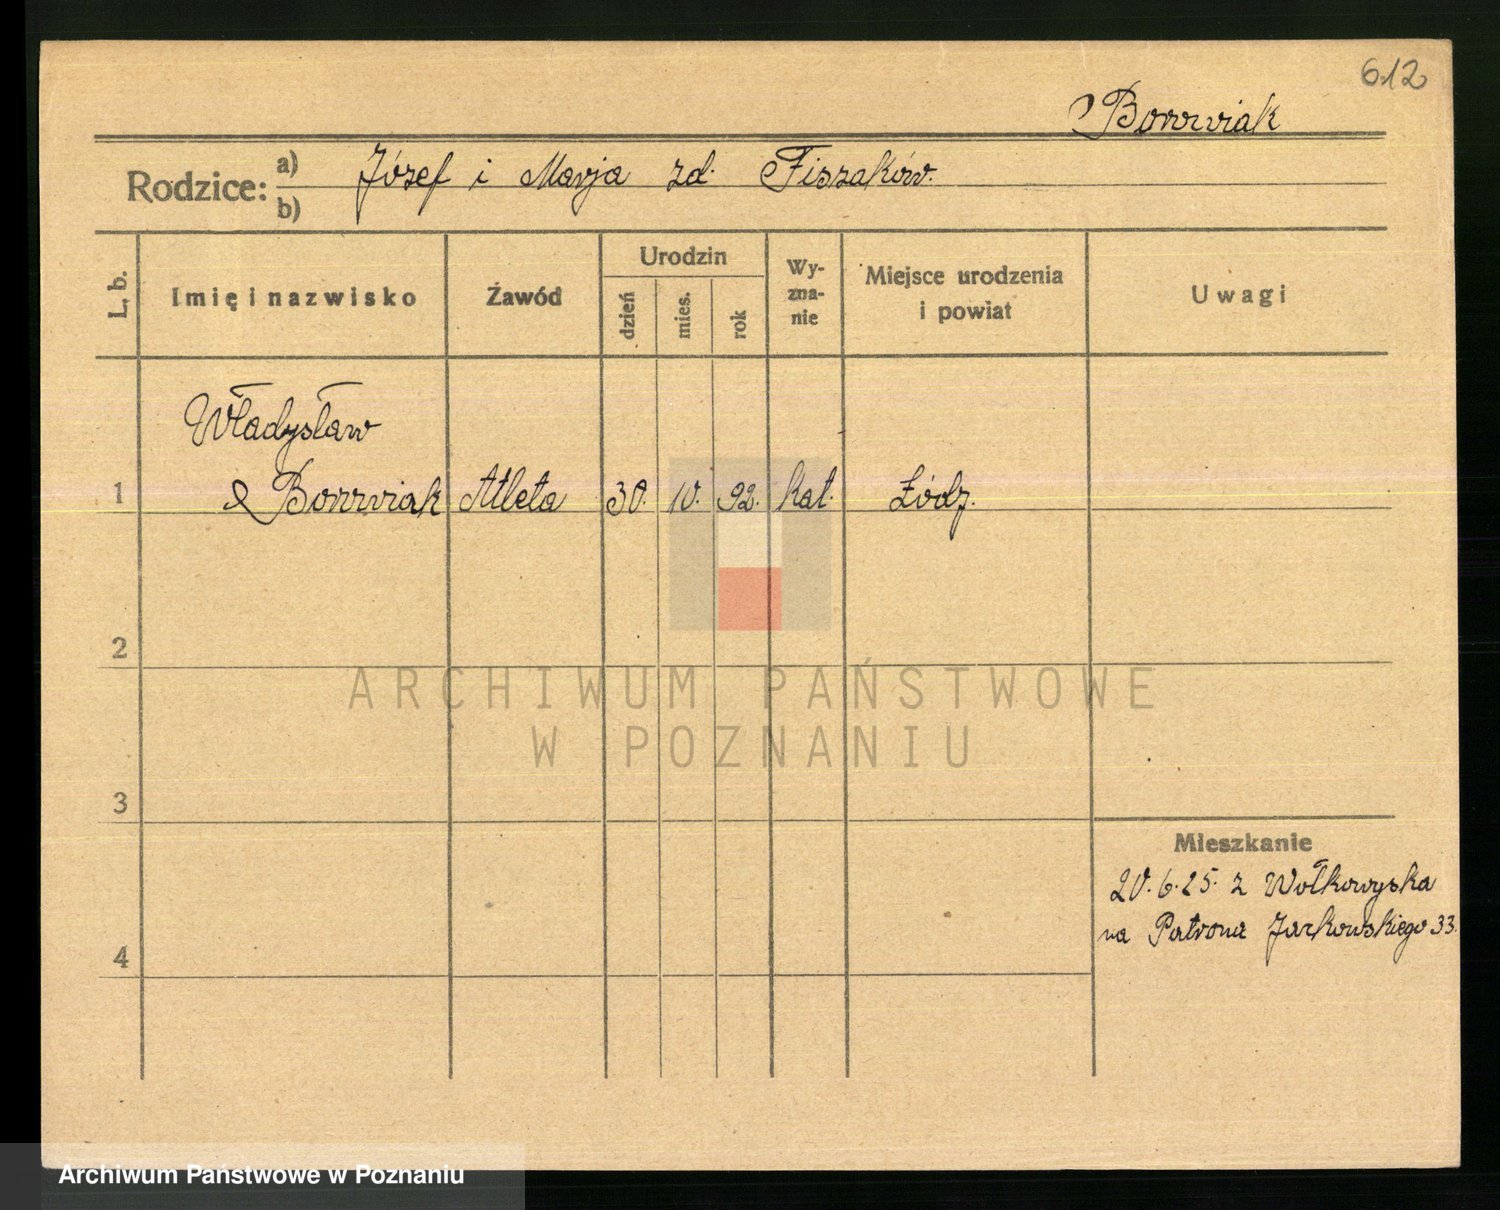 612
Borowiak
Rodzice: a) Józef i Marja zd. Fiszaków.
b)
L. b.
Imię i nazwisko
Zawód
Urodzin
dzień
mies.
rok
Wy-
zna-
nie
Miejsce urodzenia
i powiat
Uwagi
Władysław
1 Borowiak Atleta 30. 10. 92. kat. Łódź.
2
ARCHIWUM PAŃSTWOWE
W POZNANIU
3
Mieszkanie
20.6.25. z Wołkowyska
na Patrona Jackowskiego 33.
4
Archiwum Państwowe w Poznaniu